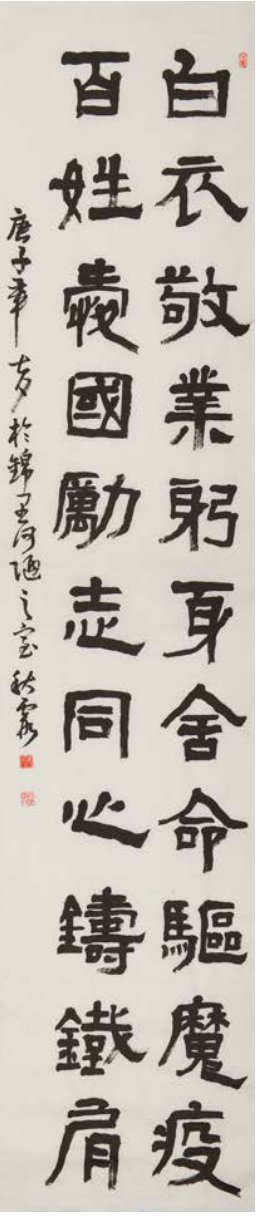 白衣敬業躬身舍命驅魔疫
百姓愛國勵志同心鑄鐵肩
庚子年於錦河之室秋霞